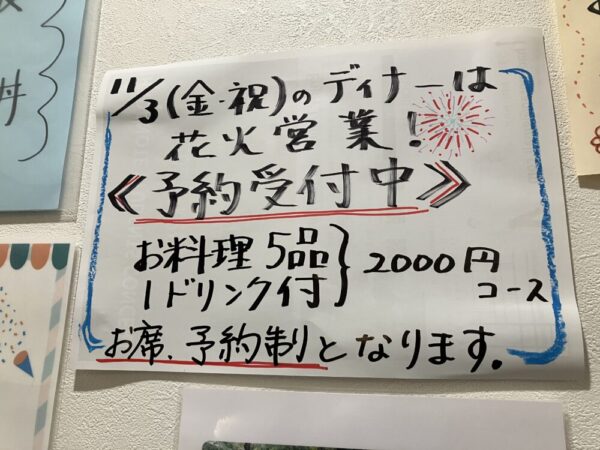 11/3(金・祝)のディナーは
花火営業!
《予約受付中》
お料理5品
1ドリンク付
}2000円
コース
お席、予約制となります。
丼